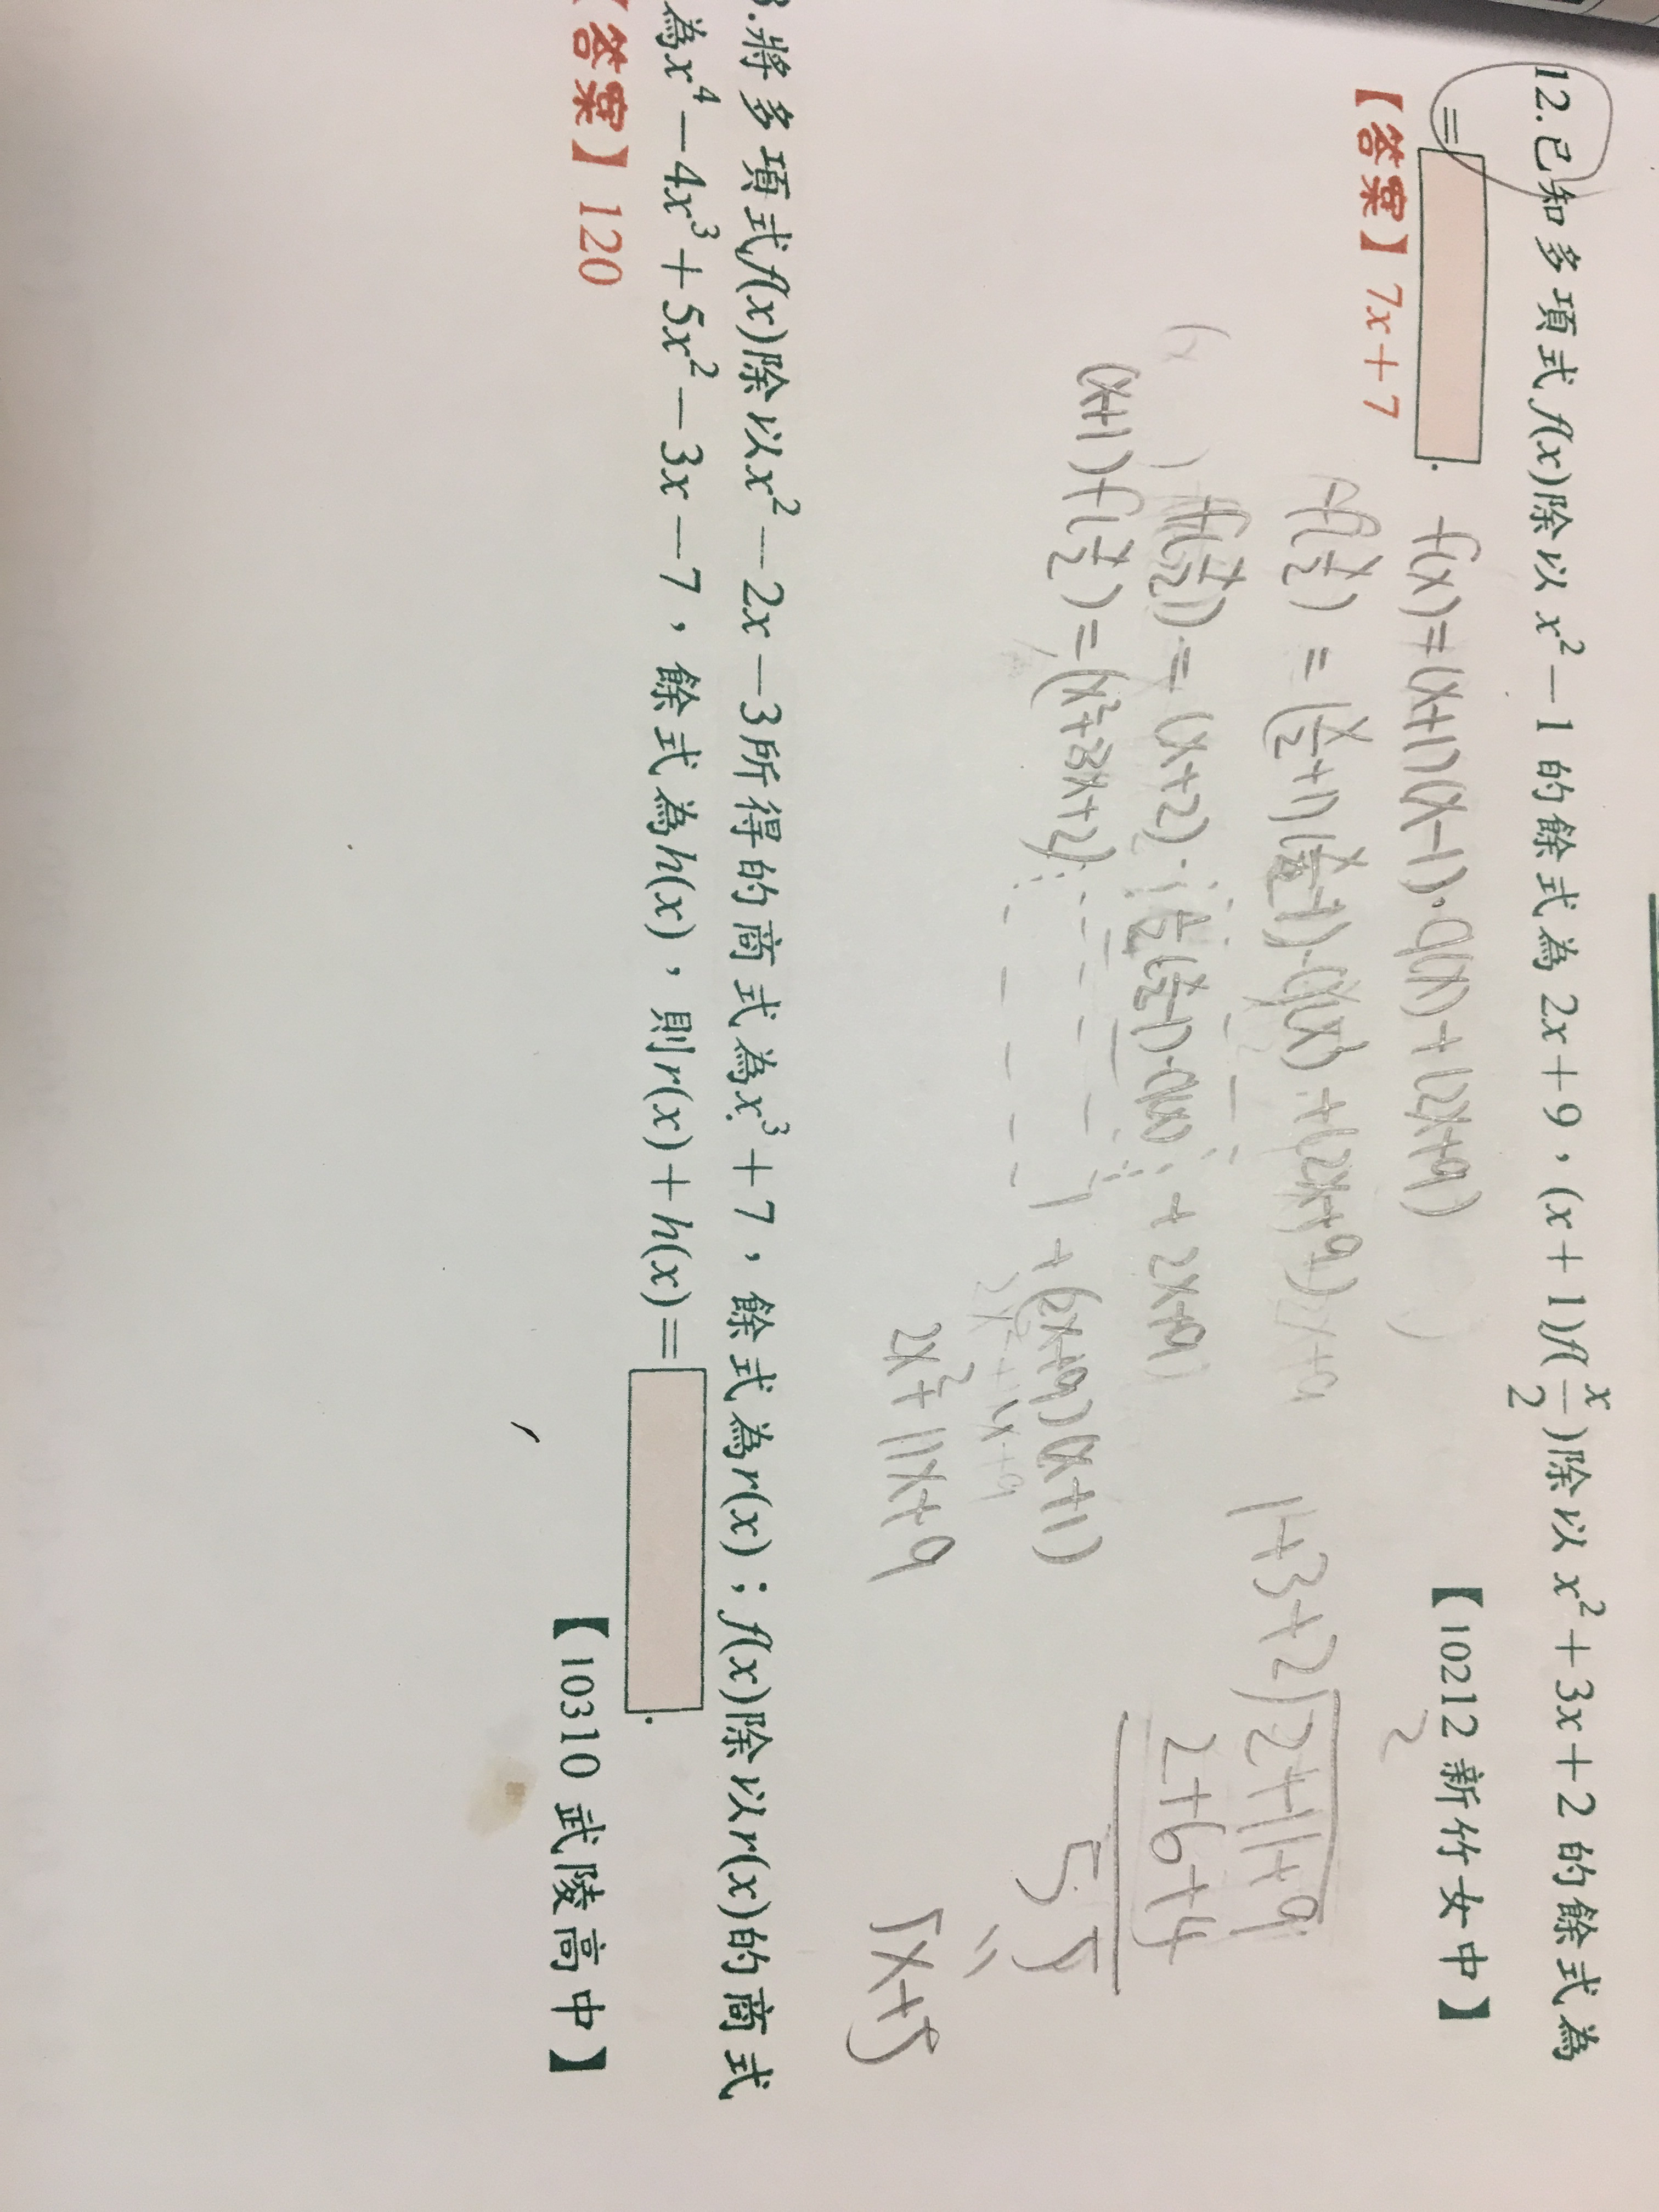 12.已知多項式 f(x)除以 x²－1 的餘式為 2x＋9，(x＋1)f(x/2)除以 x²＋3x＋2 的餘式為
＝ .
【10212 新竹女中】
【答案】7x＋7
f(x)=(x+1)(x-1)·Q(x)+(2x+9)
f(x/2) = (x/2+1)(x/2-1)·Q(x)+(2x+9)
f(x/2) = (x+2)·1/2(x/2-1)·Q(x) + 2x+9)
(x+1)f(x/2)=(x²+3x+2) + (2x+9)(x+1)
2x²+11x+9
1+3+2)2+11+9
2+6+4
5 5
5x+5
3.將多項式f(x)除以x²－2x－3所得的商式為x³＋7，餘式為r(x)；f(x)除以r(x)的商式
為x⁴－4x³＋5x²－3x－7，餘式為h(x)，則r(x)＋h(x)＝ .
【10310 武陵高中】
【答案】120